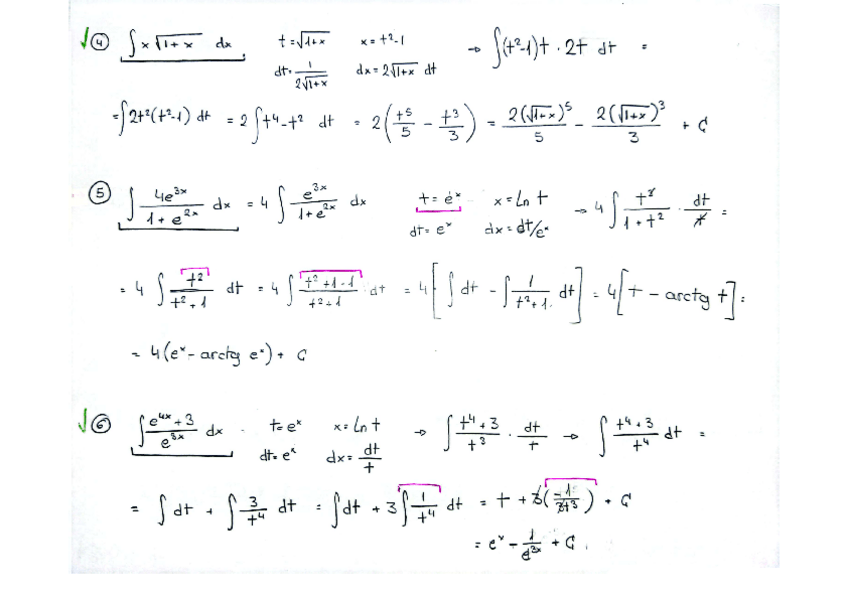 √ ④ ∫ x √(1+x) dx   t = √(1+x)   x = t²-1   → ∫(t²-1)t · 2t dt =
dt = 1/(2√(1+x))   dx = 2√(1+x) dt
= ∫2t²(t²-1) dt = 2 ∫ t⁴-t² dt = 2(t⁵/5 - t³/3) = 2(√(1+x))⁵/5 - 2(√(1+x))³/3 + C
⑤ ∫ 4e³ˣ/(1+e²ˣ) dx = 4 ∫ e³ˣ/(1+e²ˣ) dx   t = eˣ   x = Ln t   → 4 ∫ t³/(1+t²) · dt/t =
dt = eˣ   dx = dt/eˣ
= 4 ∫ t²/(t²+1) dt = 4 ∫ (t²+1-1)/(t²+1) dt = 4[∫ dt - ∫ 1/(t²+1) dt] = 4[t - arctg t] =
= 4(eˣ - arctg eˣ) + C
√ ⑥ ∫ (e⁴ˣ+3)/e³ˣ dx   t = eˣ   x = Ln t   → ∫ (t⁴+3)/t³ · dt/t → ∫ (t⁴+3)/t⁴ dt =
dt = eˣ   dx = dt/t
= ∫ dt + ∫ 3/t⁴ dt = ∫dt + 3∫ 1/t⁴ dt = t + 3(-1/3t³) + C
= eˣ - 1/e³ˣ + C.